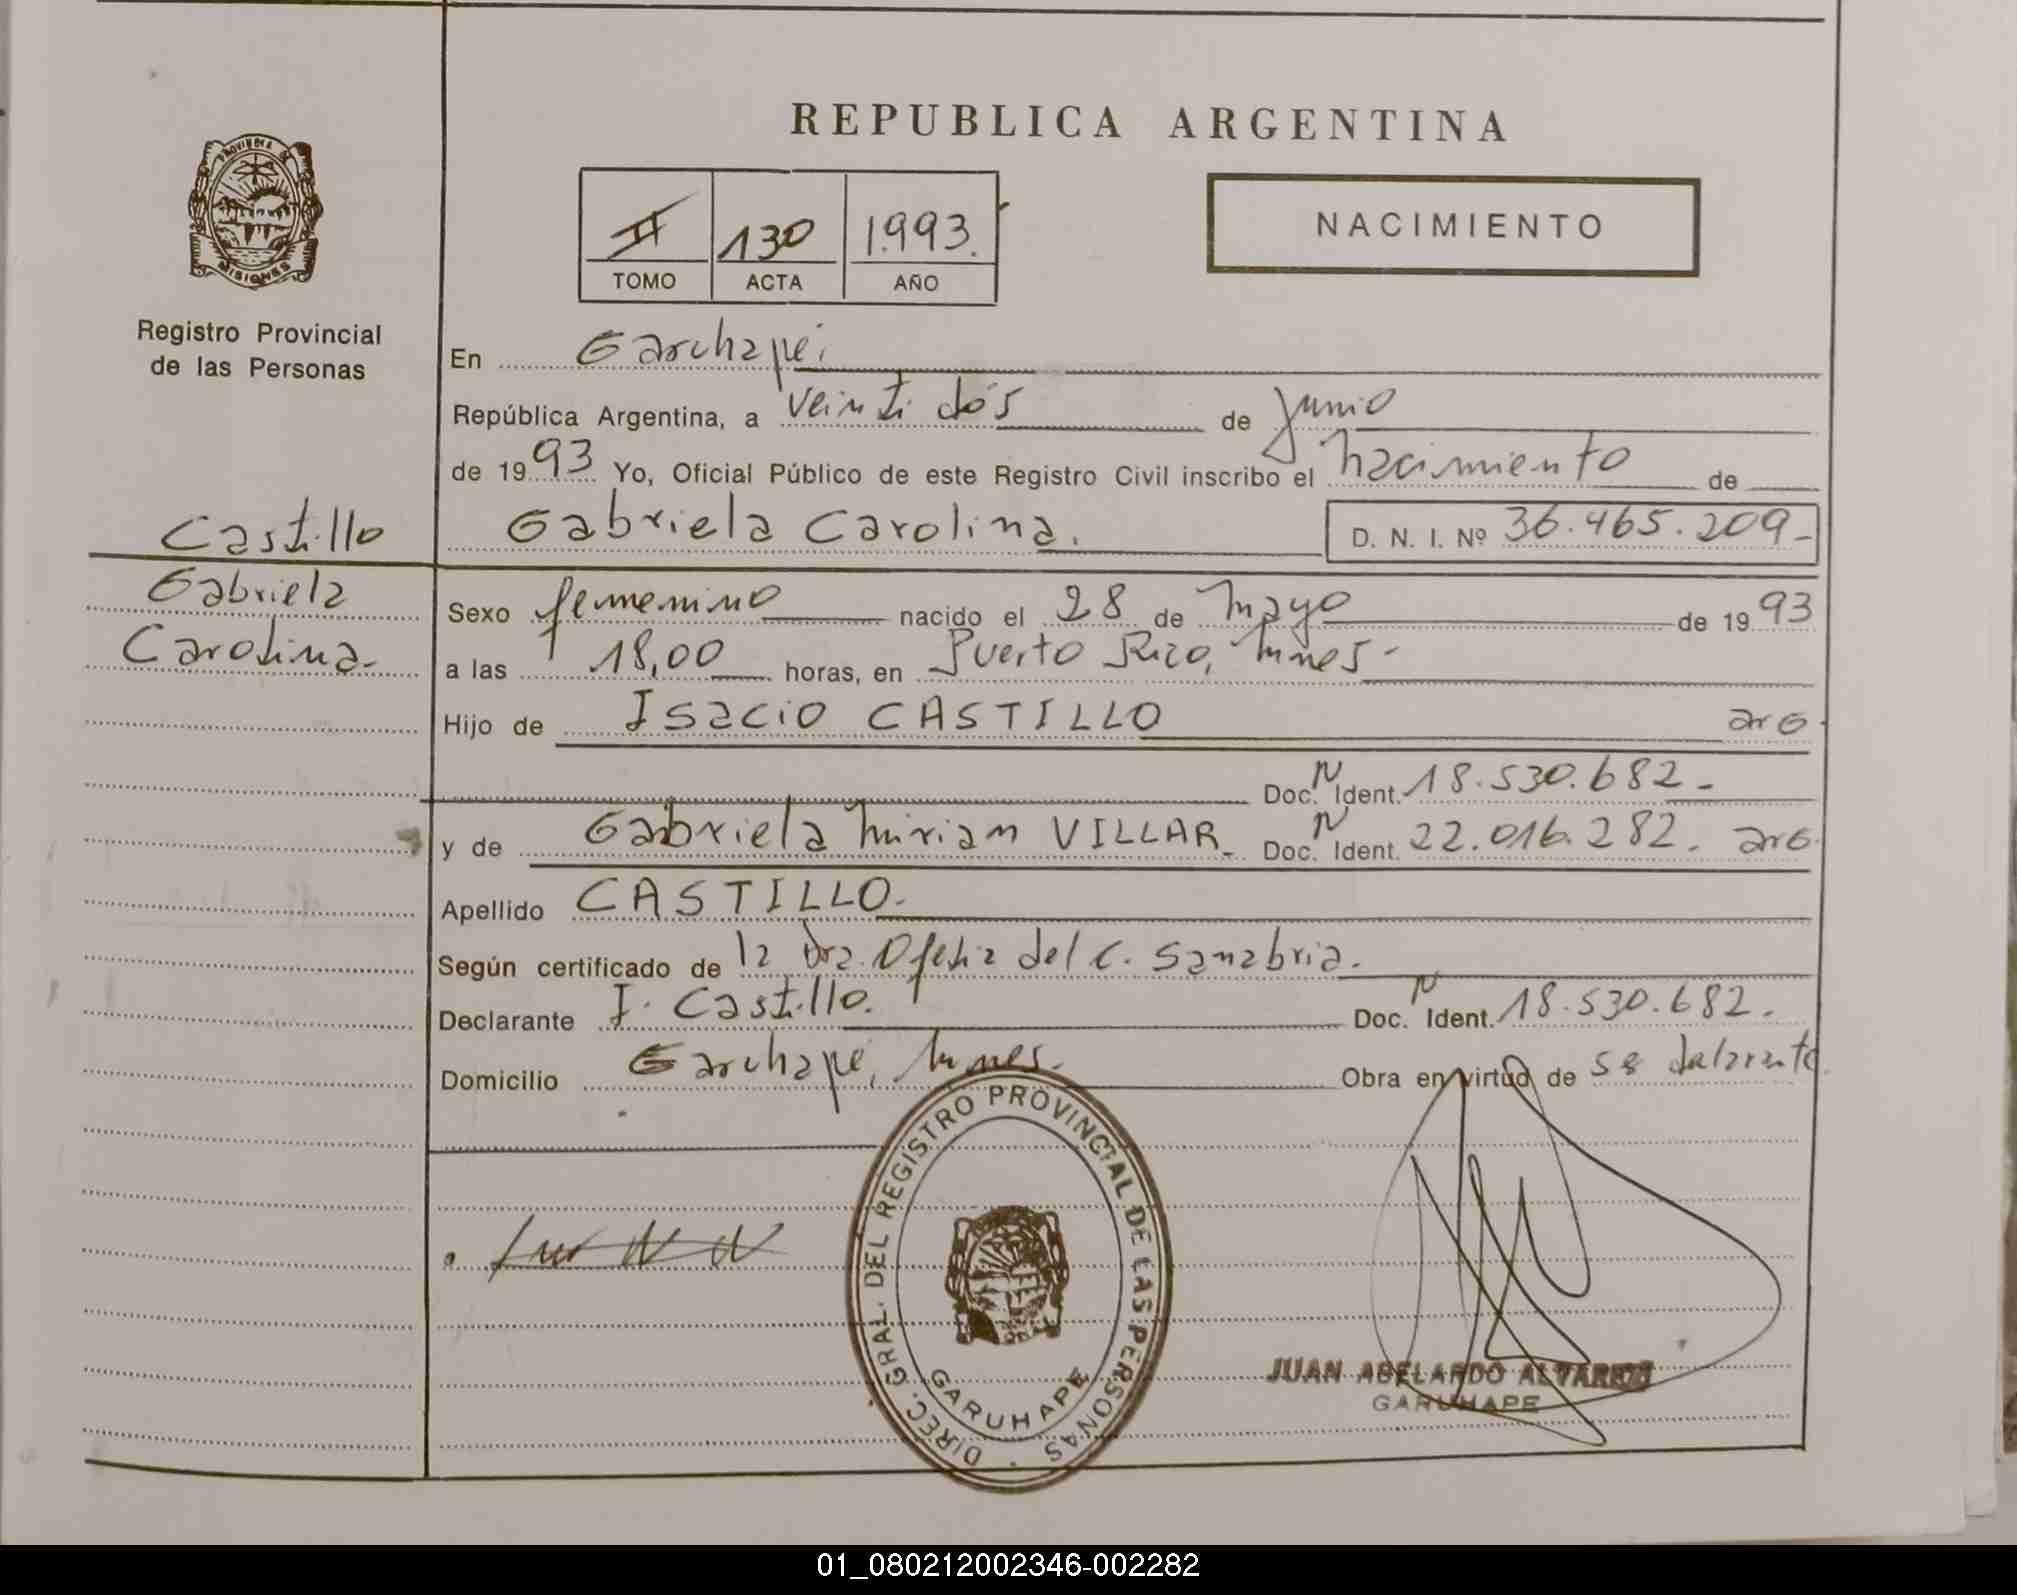 REPUBLICA ARGENTINA
PROVINCIA DE
MISIONES
Registro Provincial
de las Personas
II 130 1.993.
TOMO ACTA AÑO
NACIMIENTO
En Garuhapé,
República Argentina, a veinti dós de Junio
de 1993 Yo, Oficial Público de este Registro Civil inscribo el nacimiento de
Gabriela Carolina. D. N. I. Nº 36.465.209-
Castillo
Gabriela
Carolina.-
Sexo femenino nacido el 28 de mayo de 1993
a las 18,00 horas, en Puerto Rico, Mnes-
Hijo de Isacio CASTILLO arg.
Doc. N Ident. 18.530.682-
y de Gabriela Mirian VILLAR- Doc. N Ident. 22.016.282. arg.
Apellido CASTILLO.-
Según certificado de la Dra. Ofelia del C. Sanabria.
Declarante I. Castillo. Doc. N Ident. 18.530.682.
Domicilio Garuhapé, Mnes. Obra en virtud de
DIREC. GRAL. DEL REGISTRO PROVINCIAL DE LAS PERSONAS
GARUHAPE
JUAN ABELARDO ALVAREZ
GARUHAPE
01_080212002346-002282